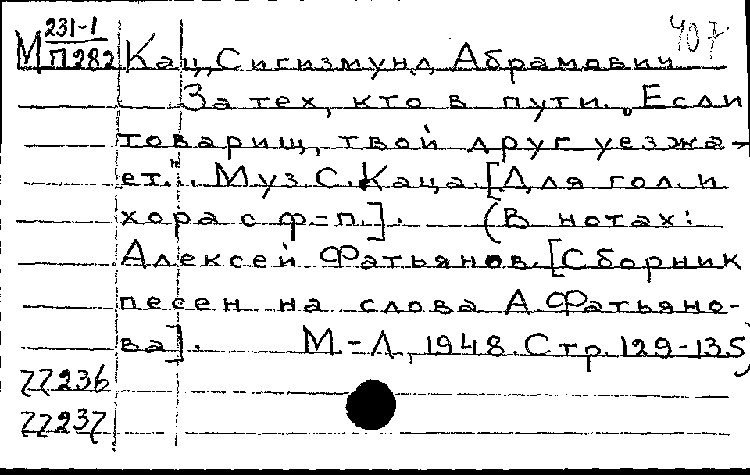 407
М 231-1
П282
Кац, Сигизмунд Абрамович
За тех, кто в пути. „Если
товарищ, твой друг уезжа-
ет..." Муз. С. Каца. [Для гол. и
хора с ф-п.]. (В нотах:
Алексей Фатьянов. [Сборник
песен на слова А. Фатьяно-
ва]. М.-Л., 1948. Стр. 129-135)
77236
77237